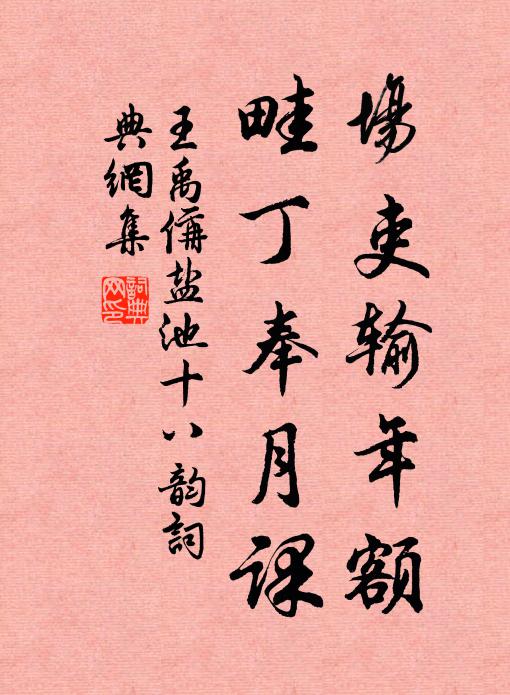 場吏输年额
畦丁奉月課
王禹偁盐池十八韵詞
典網集
詞典
网印